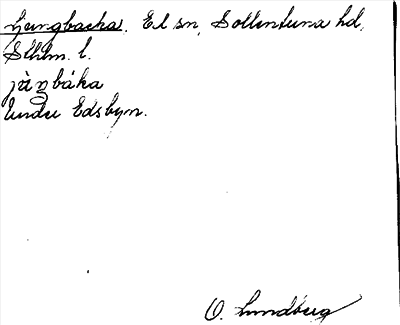 Ljungbacka. Ed sn, Sollentuna hd,
Sthlm. l.
jàŋbáka
Under Edsbyn.
O. Lundberg